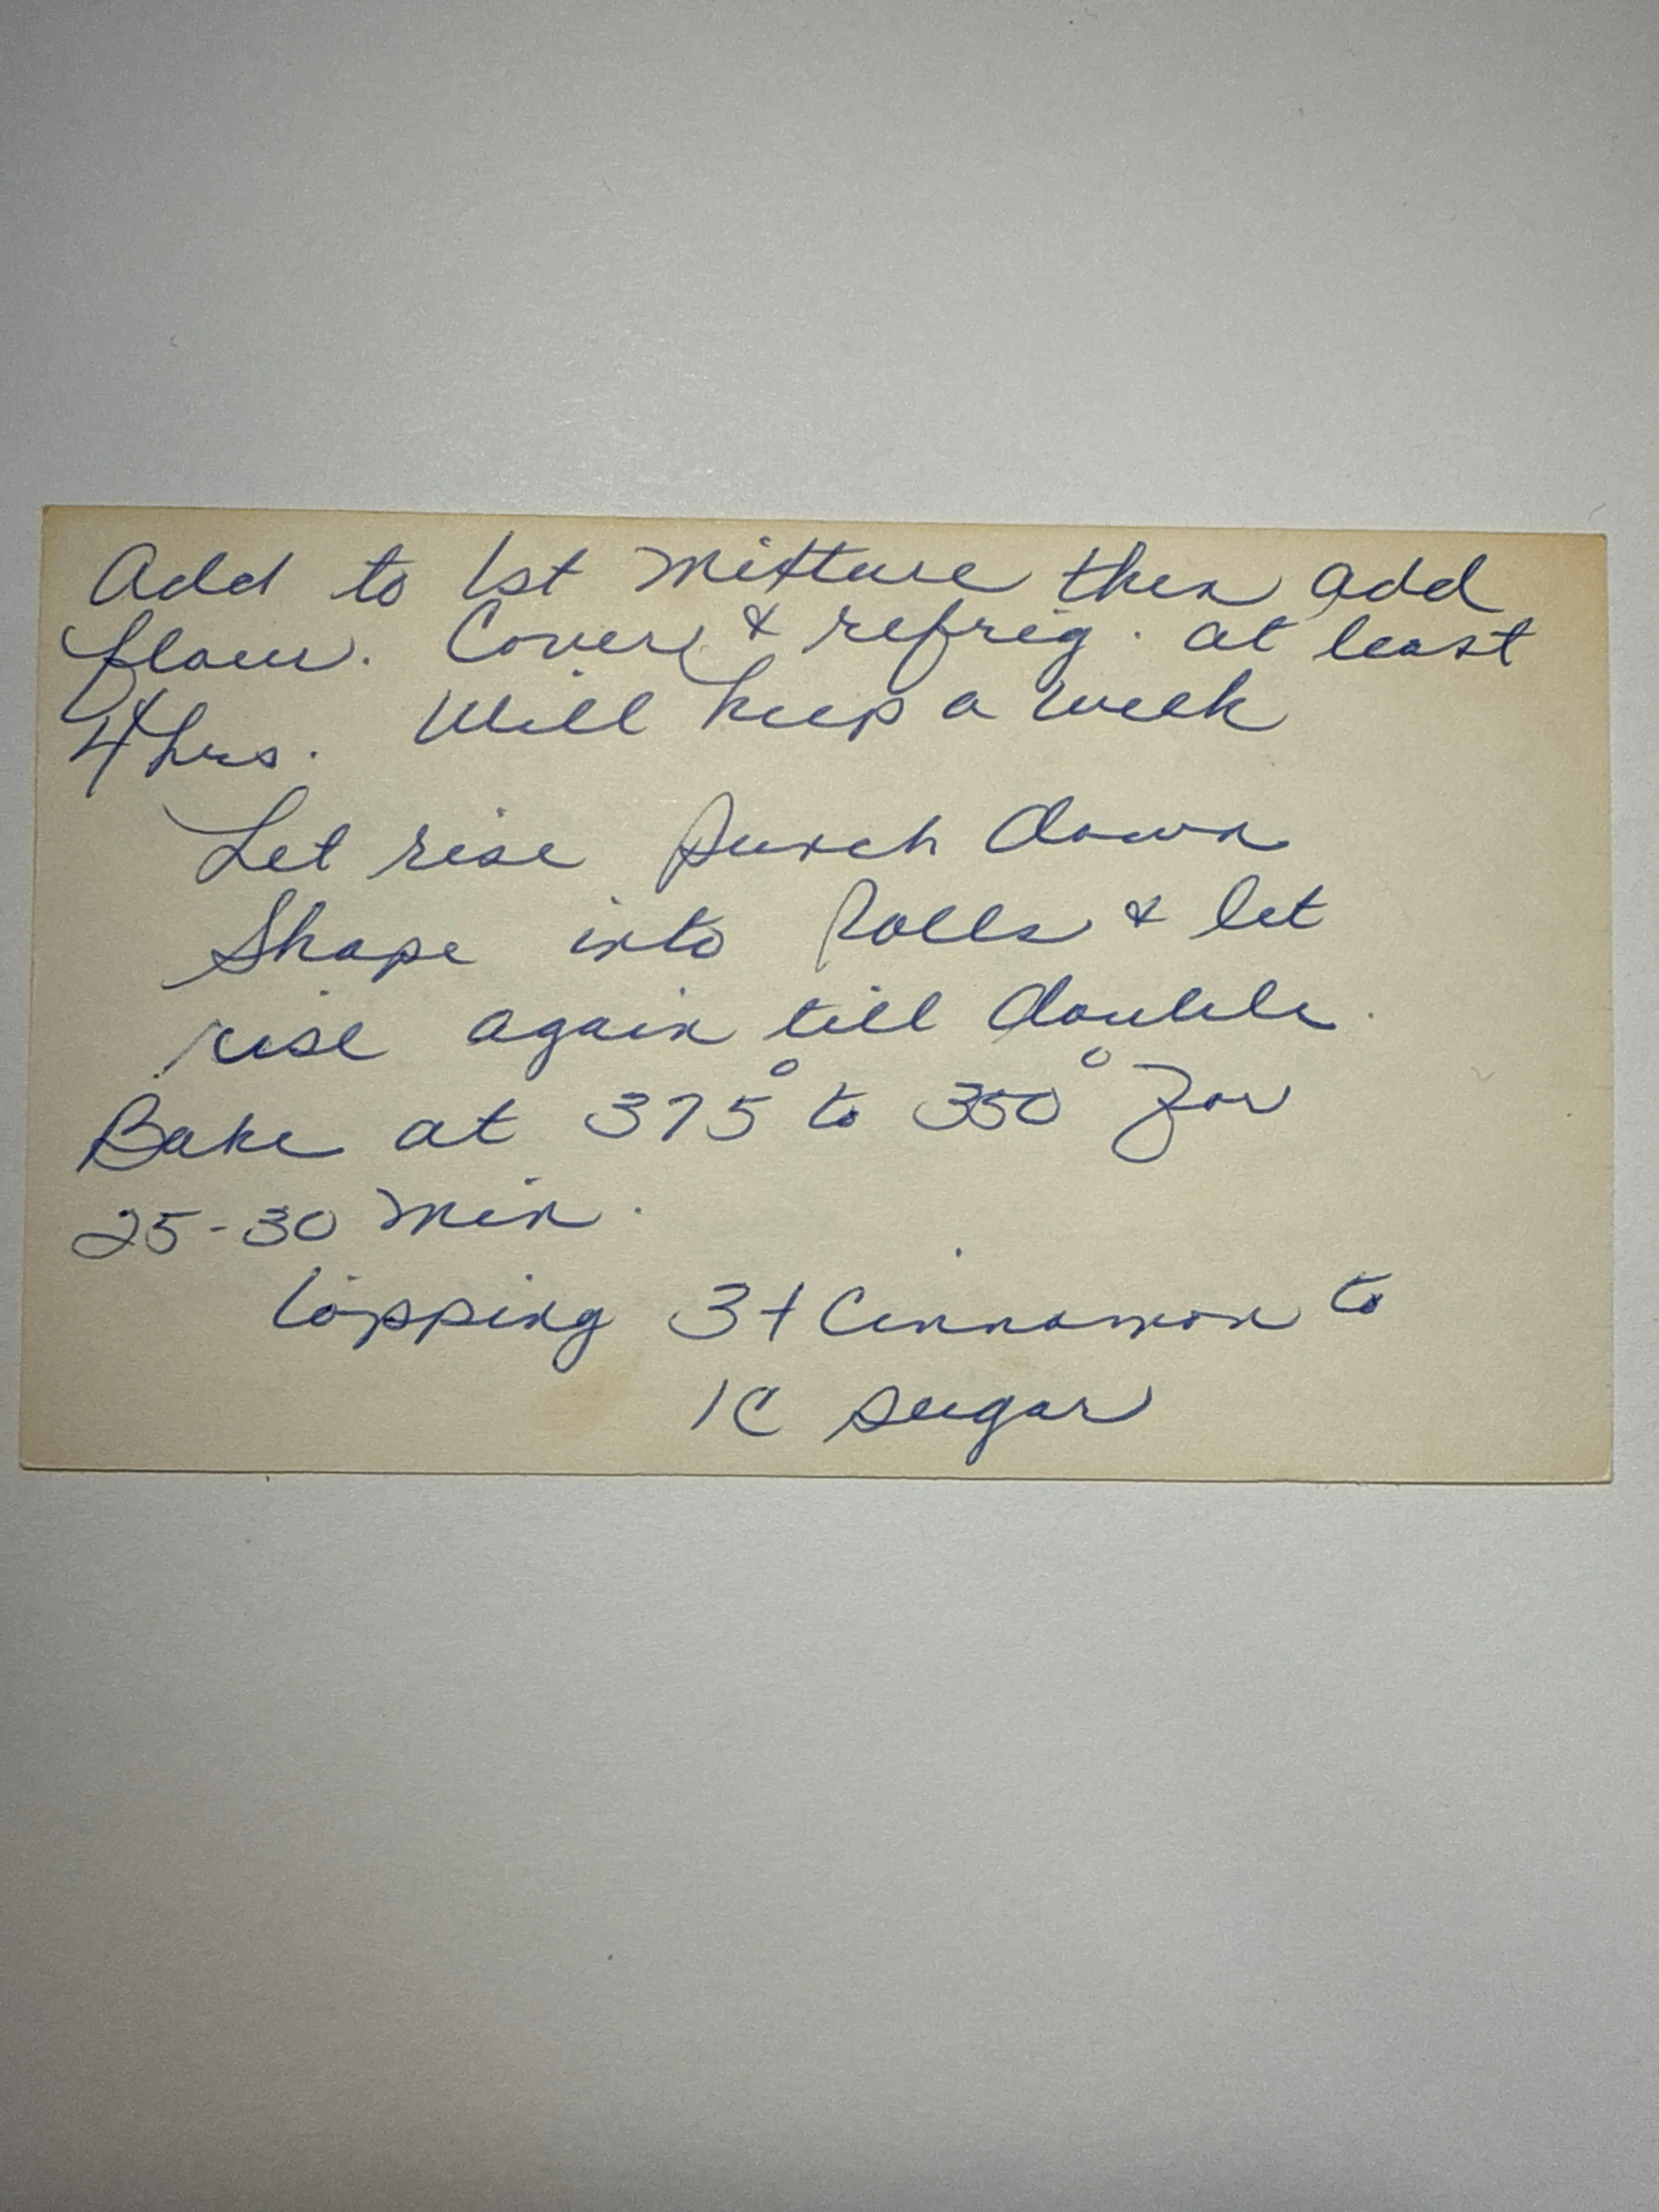 Add to 1st mixture then add
flour. Cover & refrig. at least
4 hrs. Will keep a week
Let rise punch down
Shape into Rolls & let
rise again till double.
Bake at 375° to 350° For
25-30 min.
Topping 3t Cinnamon to
1C sugar